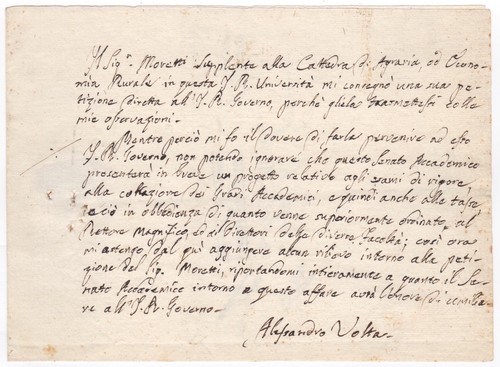 Il Sig.r Moretti Supplente alla Cattedra di Agraria ed Econo-
mia Rurale in questa I. R. Università mi consegnò una sua pe-
tizione diretta all'I. R. Governo, perchè gliela trasmettessi colle
mie osservazioni.
Mentre perciò mi fo il dovere di farla pervenire ad esso
I. R. Governo, non potendo ignorare che questo Senato Accademico
presenterà in breve un progetto relativo agli esami di rigore,
alla collazione dei Gradi Accademici, e quindi anche alle tasse
e ciò in obbedienza di quanto venne superiormente ordinato, al
Rettore Magnifico, ed ai Direttori delle diverse Facoltà; così ora
mi astengo dal quì aggiungere alcun rilievo intorno alla peti-
zione del Sig. Moretti, riportandomi intieramente a quanto il Se-
nato Accademico intorno a questo affare avrà l'onore di umilia-
re all'I. R. Governo.
Alessandro Volta